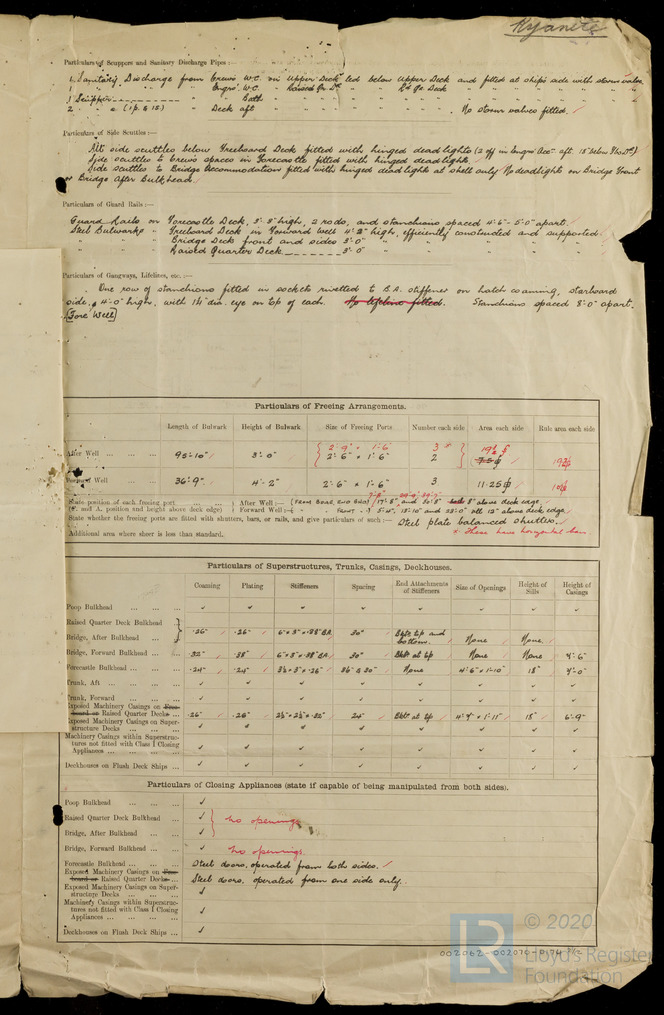 Kyanite
Particulars of Scuppers and Sanitary Discharge Pipes :—
1. Sanitary Discharge from Crews W.C. on Upper Deck led below Upper Deck and fitted at ships side with storm valve
" " " Engrs' W.C. " Raised Qr Dk " " Rd Qr Deck " " " " " "
1 Scupper " Bath " " " " " " " " "
2 " " (1 p. & 1 s.) " Deck aft " " " " No storm valves fitted.
Particulars of Side Scuttles :—
All side scuttles below Freeboard Deck fitted with hinged deadlights (2 off in Engrs' Acc" aft.
Side scuttles to crews spaces in Forecastle fitted with hinged deadlights.
Side scuttles to Bridge Accommodation fitted with hinged deadlights at shell only No deadlights on Bridge Front
or Bridge After Bulkhead
Particulars of Guard Rails :—
Guard Rails on Forecastle Deck, 3'-3" high, 2 rods, and stanchions spaced 4'-6" - 5'-0" apart.
Steel Bulwarks " Freeboard Deck in Forward Well 4'-2" high, efficiently constructed and supported.
" " " Bridge Deck front and sides 3'-0" " " " "
" " " Raised Quarter Deck 3'-0" " " " "
Particulars of Gangways, Lifelines, etc. :—
One row of stanchions fitted in sockets rivetted to B.A. stiffener on hatch coaming, starboard
side, 4'-0" high, with 1¼" dia. eye on top of each. No lifeline fitted. Stanchions spaced 8'-0" apart.
[Fore Well]
Particulars of Freeing Arrangements.
Length of Bulwark Height of Bulwark Size of Freeing Ports Number each side Area each side Rule area each side
2'-9" × 1'-6" 3 *
After Well ... ... ... 95'-10" 3'-0" 2'-6" × 1'-6" 2
Forward Well ... ... 36'-9" 4'-2" 2'-6" × 1'-6" 3 11.25
State position of each freeing port ... ... ... After Well :—
(F. and A. position and height above deck edge) Forward Well :—
State whether the freeing ports are fitted with shutters, bars, or rails, and give particulars of such :— Steel plate balanced shutters.
Additional area where sheer is less than standard. * These have horizontal bars
Particulars of Superstructures, Trunks, Casings, Deckhouses.
Coaming Plating Stiffeners Spacing End Attachments of Stiffeners Size of Openings Height of Sills Height of Casings
Poop Bulkhead ... ... ... ✓ ✓ ✓ ✓ ✓ ✓ ✓ ✓
Raised Quarter Deck Bulkhead
Bridge, After Bulkhead ... ... .26" .26" 6" × 3" × .38" BA 30" Bkts top and bottom. None None.
Bridge, Forward Bulkhead ... .32" .38" 6" × 3" × .38" BA 30" Bkts at top None None 7'-6"
Forecastle Bulkhead ... ... .24" .24" 3½" × 3" × .26" 26" & 30" None 4'-6" × 1'-10" 18" 7'-0"
Trunk, Aft ... ... ... ✓ ✓ ✓ ✓ ✓ ✓ ✓ ✓
Trunk, Forward ... ... ✓ ✓ ✓ ✓ ✓ ✓ ✓ ✓
Exposed Machinery Casings on Free-
board or Raised Quarter Decks ... .26" .26" 2½" × 2½" × .32" 24" Bkts at top 4'-9" × 1'-11" 18" 6'-9"
Exposed Machinery Casings on Super-
structure Decks ... ... ✓ ✓ ✓ ✓ ✓ ✓ ✓ ✓
Machinery Casings within Superstruc-
tures not fitted with Class I Closing
Appliances ... ... ... ✓ ✓ ✓ ✓ ✓ ✓ ✓ ✓
Deckhouses on Flush Deck Ships ... ✓ ✓ ✓ ✓ ✓ ✓ ✓ ✓
Particulars of Closing Appliances (state if capable of being manipulated from both sides).
Poop Bulkhead ... ... ... ✓
Raised Quarter Deck Bulkhead ... ✓ No openings
Bridge, After Bulkhead ... ... ✓
Bridge, Forward Bulkhead ... No openings.
Forecastle Bulkhead ... ... Steel doors, operated from both sides.
Exposed Machinery Casings on Free-
board or Raised Quarter Decks ... Steel doors, operated from one side only.
Exposed Machinery Casings on Super-
structure Decks ... ... ✓
Machinery Casings within Superstruc-
tures not fitted with Class I Closing
Appliances ... ... ... ✓
Deckhouses on Flush Deck Ships ... ✓
002062-002070-0174 2/2
LR © 2020
Lloyd's Register
Foundation